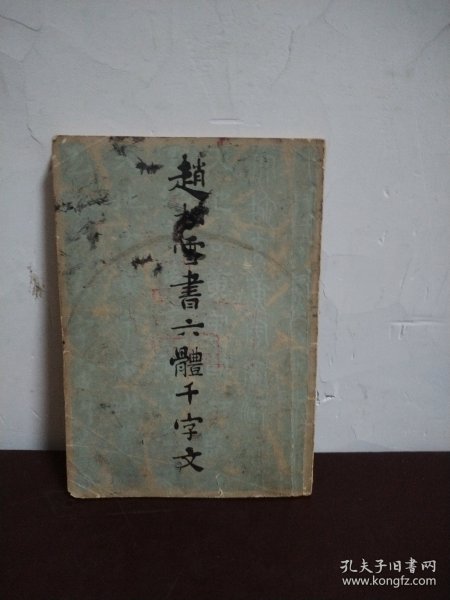 趙松雪書六體千字文
孔夫子旧书网
www.kongfz.com